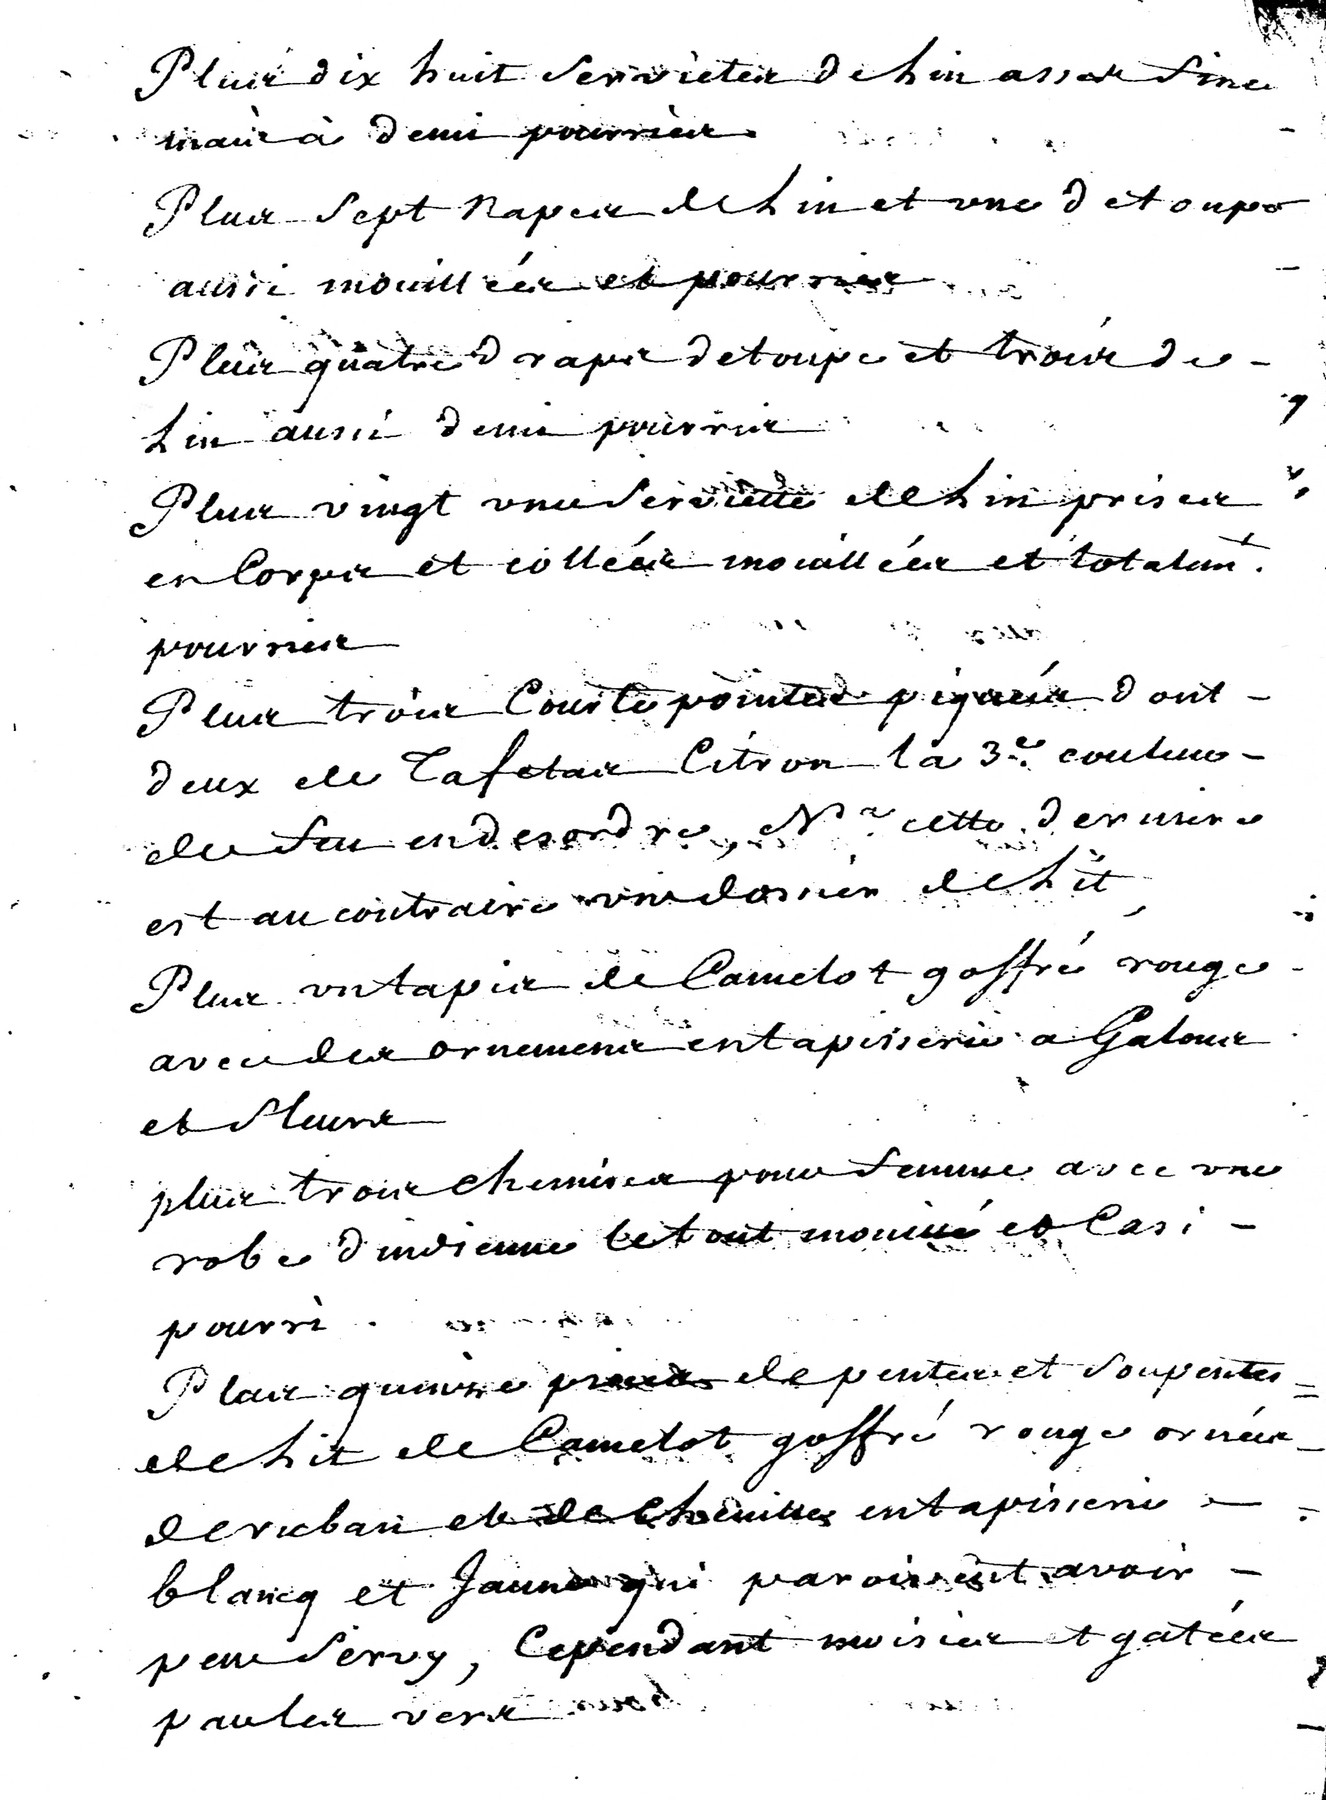 Plus dix huit Serviettes de Lin asses fine
mais à demi pourries.
Plus Sept Napes de Lin et une d'etoupe
aussi mouillées et pourries
Plus quatre draps detoupe et trois de -
Lin aussi demi pourris
Plus vingt une Serviette de Lin prises
en Corps et collées mouillées et totalemt.
pourries
Plus trois Courtepointes piquées dont -
deux de Tafetas Citron la 3.e couleur -
de feu en desordre, Na cette derniere
est au contraire un dossier de Lit
Plus un tapis de Camelot goffré rouge -
avec des ornemens en tapisserie a Galons
et fleurs
plus trois chemises pour femme avec une
robe dindienne le tout mouillé et Casi -
pourri .
Plus quinze pieces de pentes et Soupentes =
de Lit de Camelot goffré rouge ornées -
de ruban et de Chenilles en tapisserie -
blancq et Jaune qui paroissent avoir -
peu Servy, Cependant moisies et gatées
par les vers